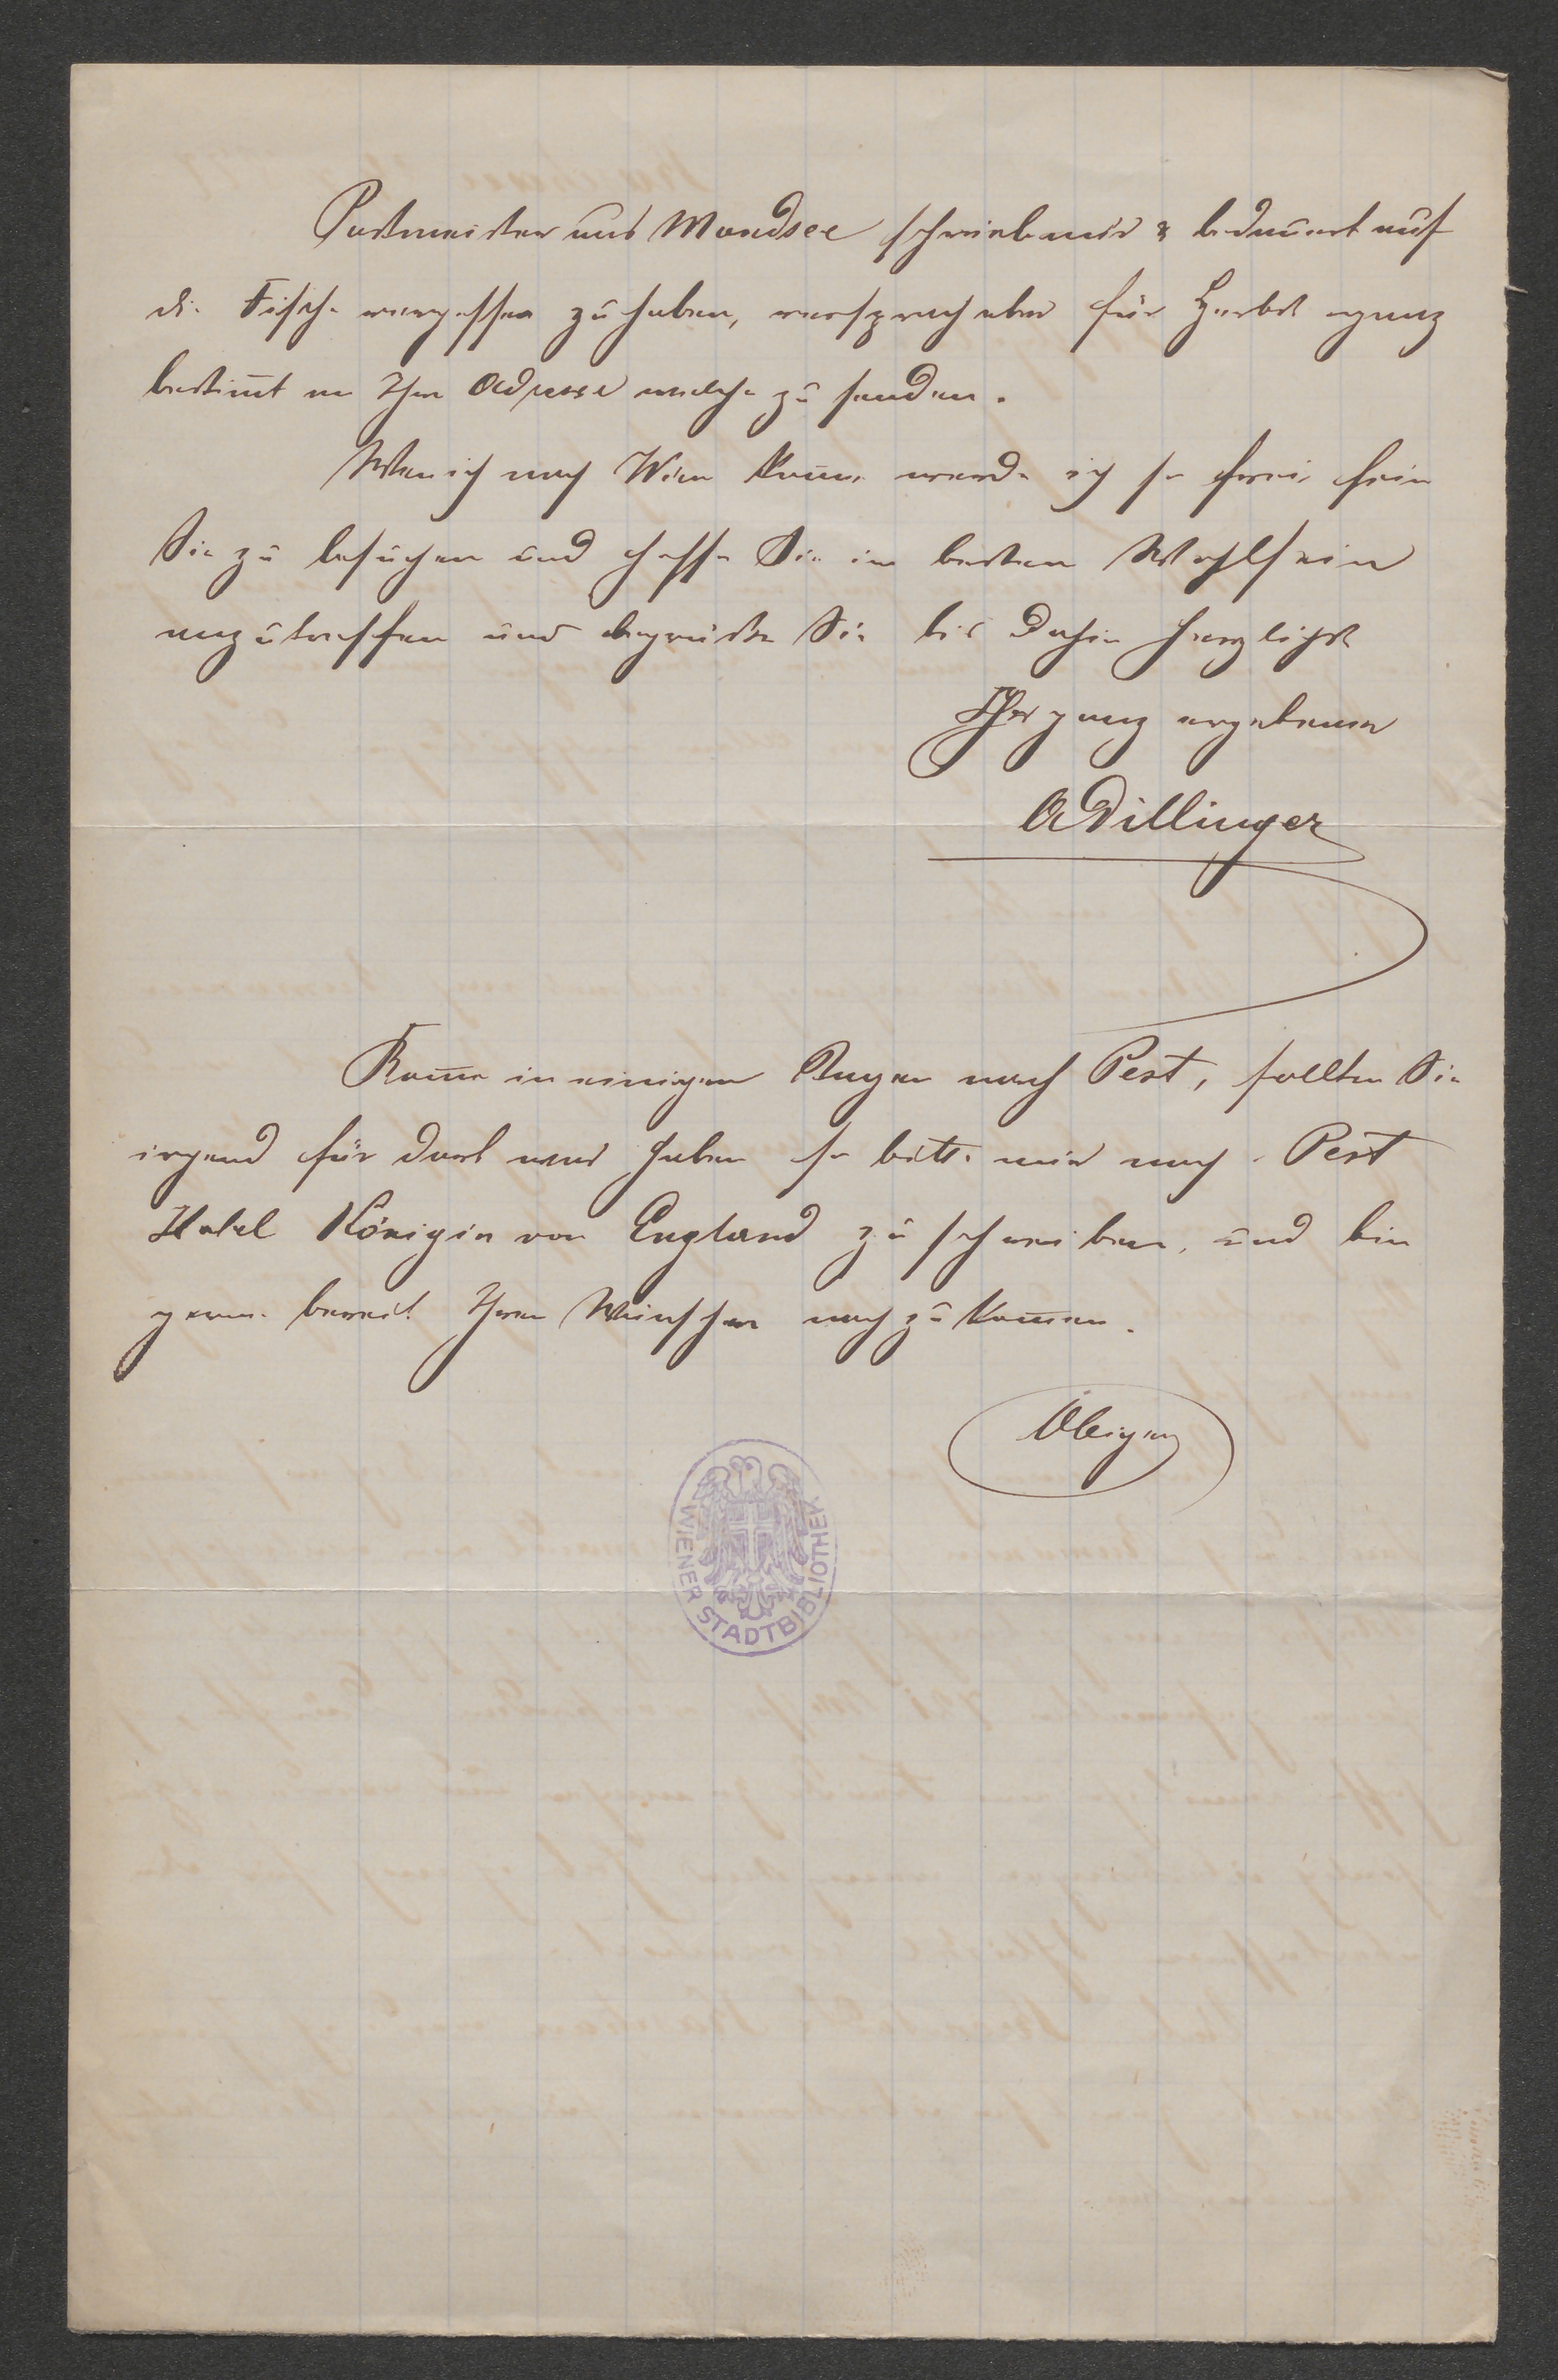 Postmeister aus Mondsee schrieb mir & bedauert auf
die Fische vergessen zu haben, versprach aber für Herbst ganz
bestim̅t an Ihre Adresse welche zu senden.
Wen ich nach Wien kom̅e werde ich so frei sein
Sie zu besuchen und hoffe Sie im besten Wohlsein
anzutreffen und begrüße Sie bis dahin herzlichst
Ihr ganz ergebener
ADillinger
Kom̅e in einigen Tagen nach Pest, sollten Sie
irgend für dort was haben so bitte mir nach Pest
Hotel Königin von England zu schreiben, und bin
gerne bereit Ihren Wünschen nachzukom̅en.
Obiger
WIENER STADTBIBLIOTHEK